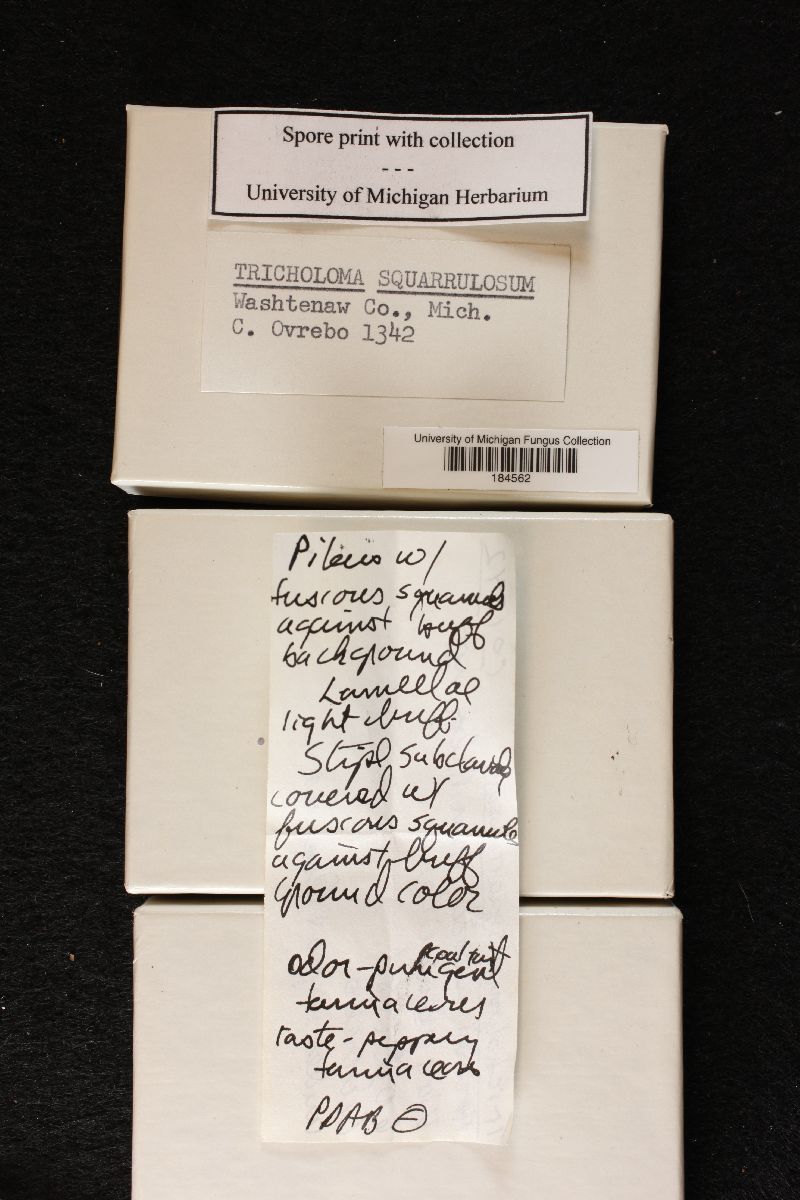 Spore print with collection
- - -
University of Michigan Herbarium
TRICHOLOMA SQUARRULOSUM
Washtenaw Co., Mich.
C. Ovrebo 1342
University of Michigan Fungus Collection
184562
Pileus w/
fuscous squamules
against buff
background
Lamellae
light buff
Stipe subclavate
covered w/
fuscous squamules
against buff
ground color
odor - pungent
farinaceous
taste - peppery
farinaceous
PDAB ⊖